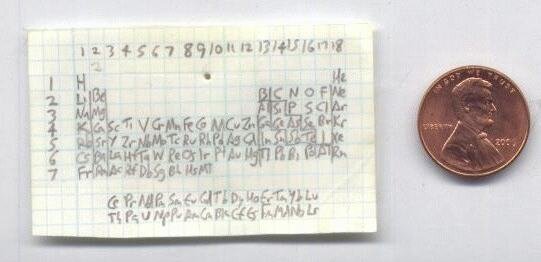 1 2 3 4 5 6 7 8 9 10 11 12 13 14 15 16 17 18
1 H He
2 Li Be B C N O F Ne
3 Na Mg Al Si P S Cl Ar
4 K Ca Sc Ti V Cr Mn Fe Co Ni Cu Zn Ga Ge As Se Br Kr
5 Rb Sr Y Zr Nb Mo Tc Ru Rh Pd Ag Cd In Sn Sb Te I Xe
6 Cs Ba La Hf Ta W Re Os Ir Pt Au Hg Tl Pb Bi Po At Rn
7 Fr Ra Ac Rf Db Sg Bh Hs Mt
Ce Pr Nd Pm Sm Eu Gd Tb Dy Ho Er Tm Yb Lu
Th Pa U Np Pu Am Cm Bk Cf Es Fm Md No Lr
IN GOD WE TRUST
LIBERTY